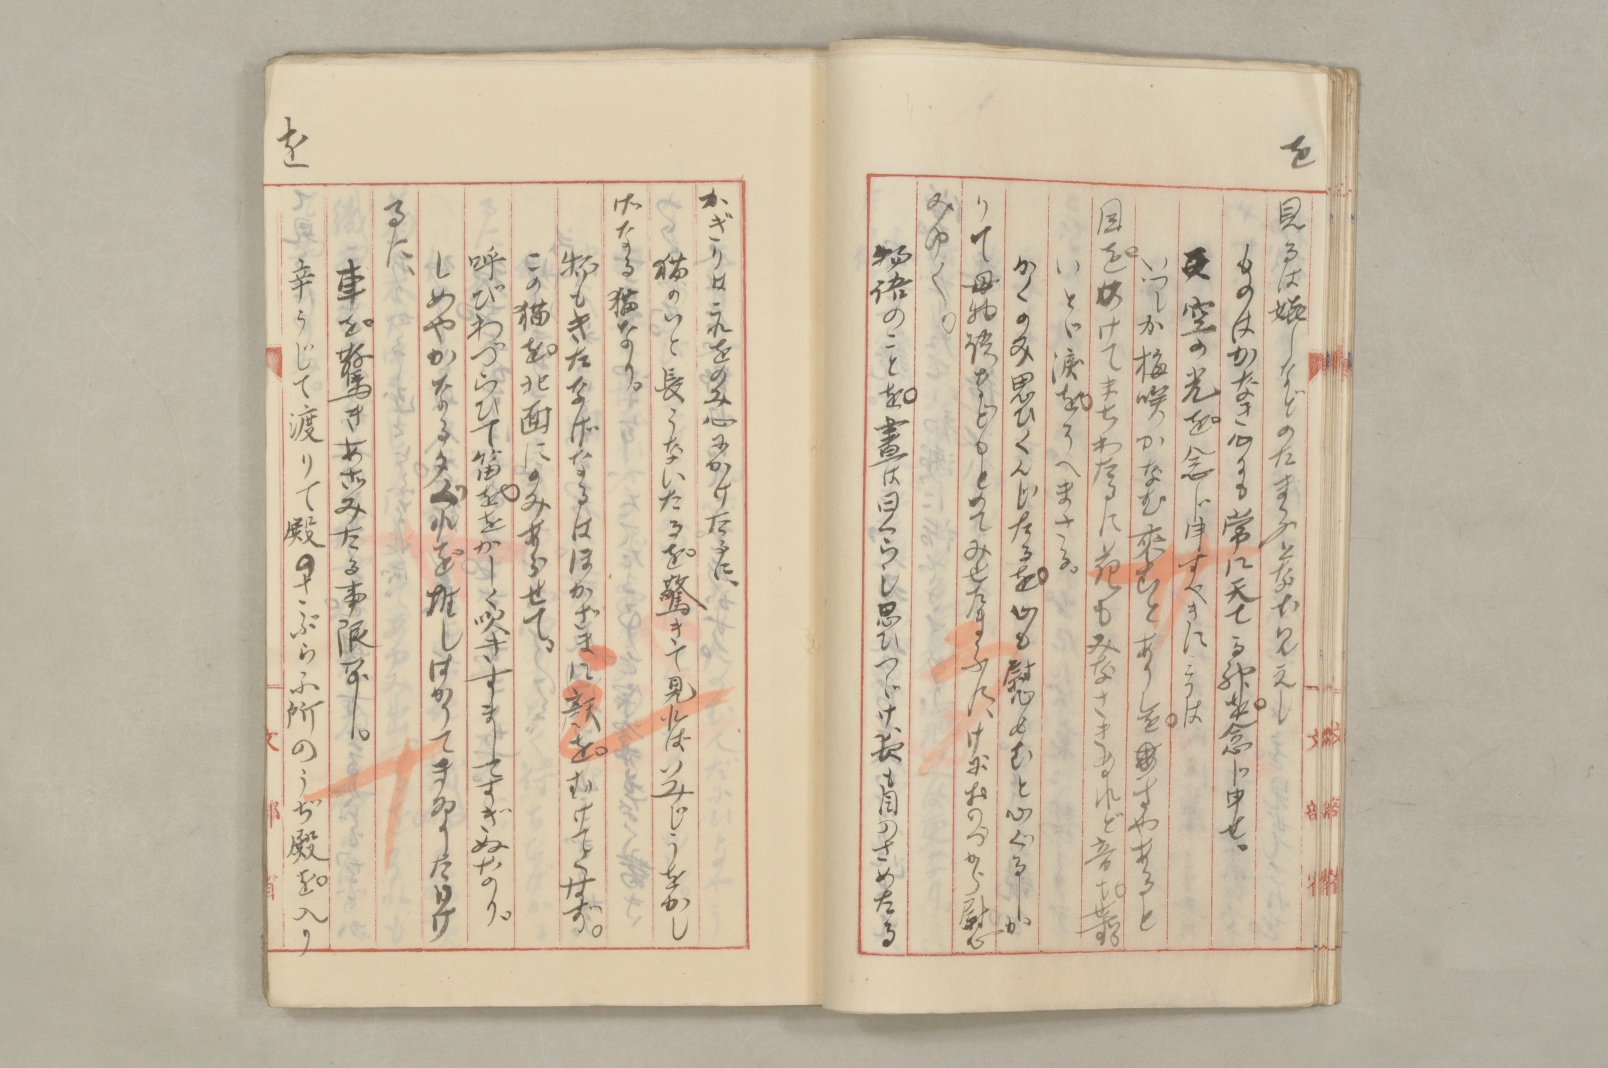 を
見るは嬉しなどのたまふ
ものはかなき心にも常に天てる神を念じ申せ。
天空の光を念じ申すべきにこうは
いつしか梅咲かなむ來むとありしをさやあると
目をかけてまちわたるに花もみなさきぬれど音も
いとど涙をそへまさる。
かくのみ思ひくんじたるを心も慰めむと心ぐるしが
りて母物語などもとめてみせたまふに、げにおのづから慰
みゆく。
物語のことを晝は日くらし思ひつづけ、夜も目のさめたる
を
かぎりは、これをのみ心にかけたるに、
猫のいと長うないたるを驚きて見ればいみじうをかし
げなる猫なり。
物もきたなげなるはほかざまに顔をむけてくはず。
この猫を北面にのみあらせて、
呼びわづらひて笛ををかしく吹きすましてすぎぬなり。
しめやかなる夕ぐれを推しはかりて
るに、
車を驚きあさみたる事限なし。
辛うじて渡りて殿のさぶらふ所のうぢ殿を入り
文部省